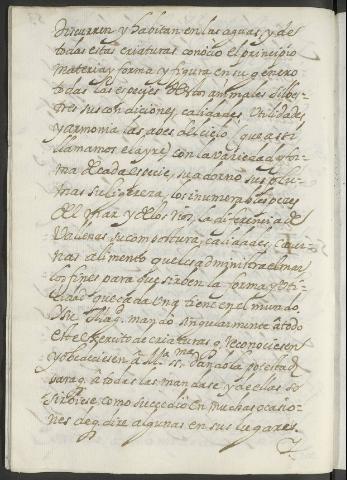 discurren y habitan en las aguas, y de
todas estas criaturas conocio el principio
materia y forma y figura en su genero
todas las especies de estos animales silves-
tres sus condiciones, calidades, utilidades
y armonia las aves del cielo (que asi
llamamos el ayre) con la variedad y for-
ma de cada especie, su adorno sus plu-
mas su ligereza, los inumerables peces
del mar, y de los rios, la diferencia de
Vallenas su compostura, calidades, caver-
nas alimento que les administra el mar
los fines para que sirben la forma y uti-
lidad que cada una tiene en el mundo,
y su Mag. mandó singularmente a todo
este exercito de criaturas q. reconociesen
y obedeciesen à M.ª ss.ma dandola potestad
para q. à todas las mandase y de ellas se
sirviese, como succedió en muchas ocasio-
nes de q. dire algunas en sus lugares.